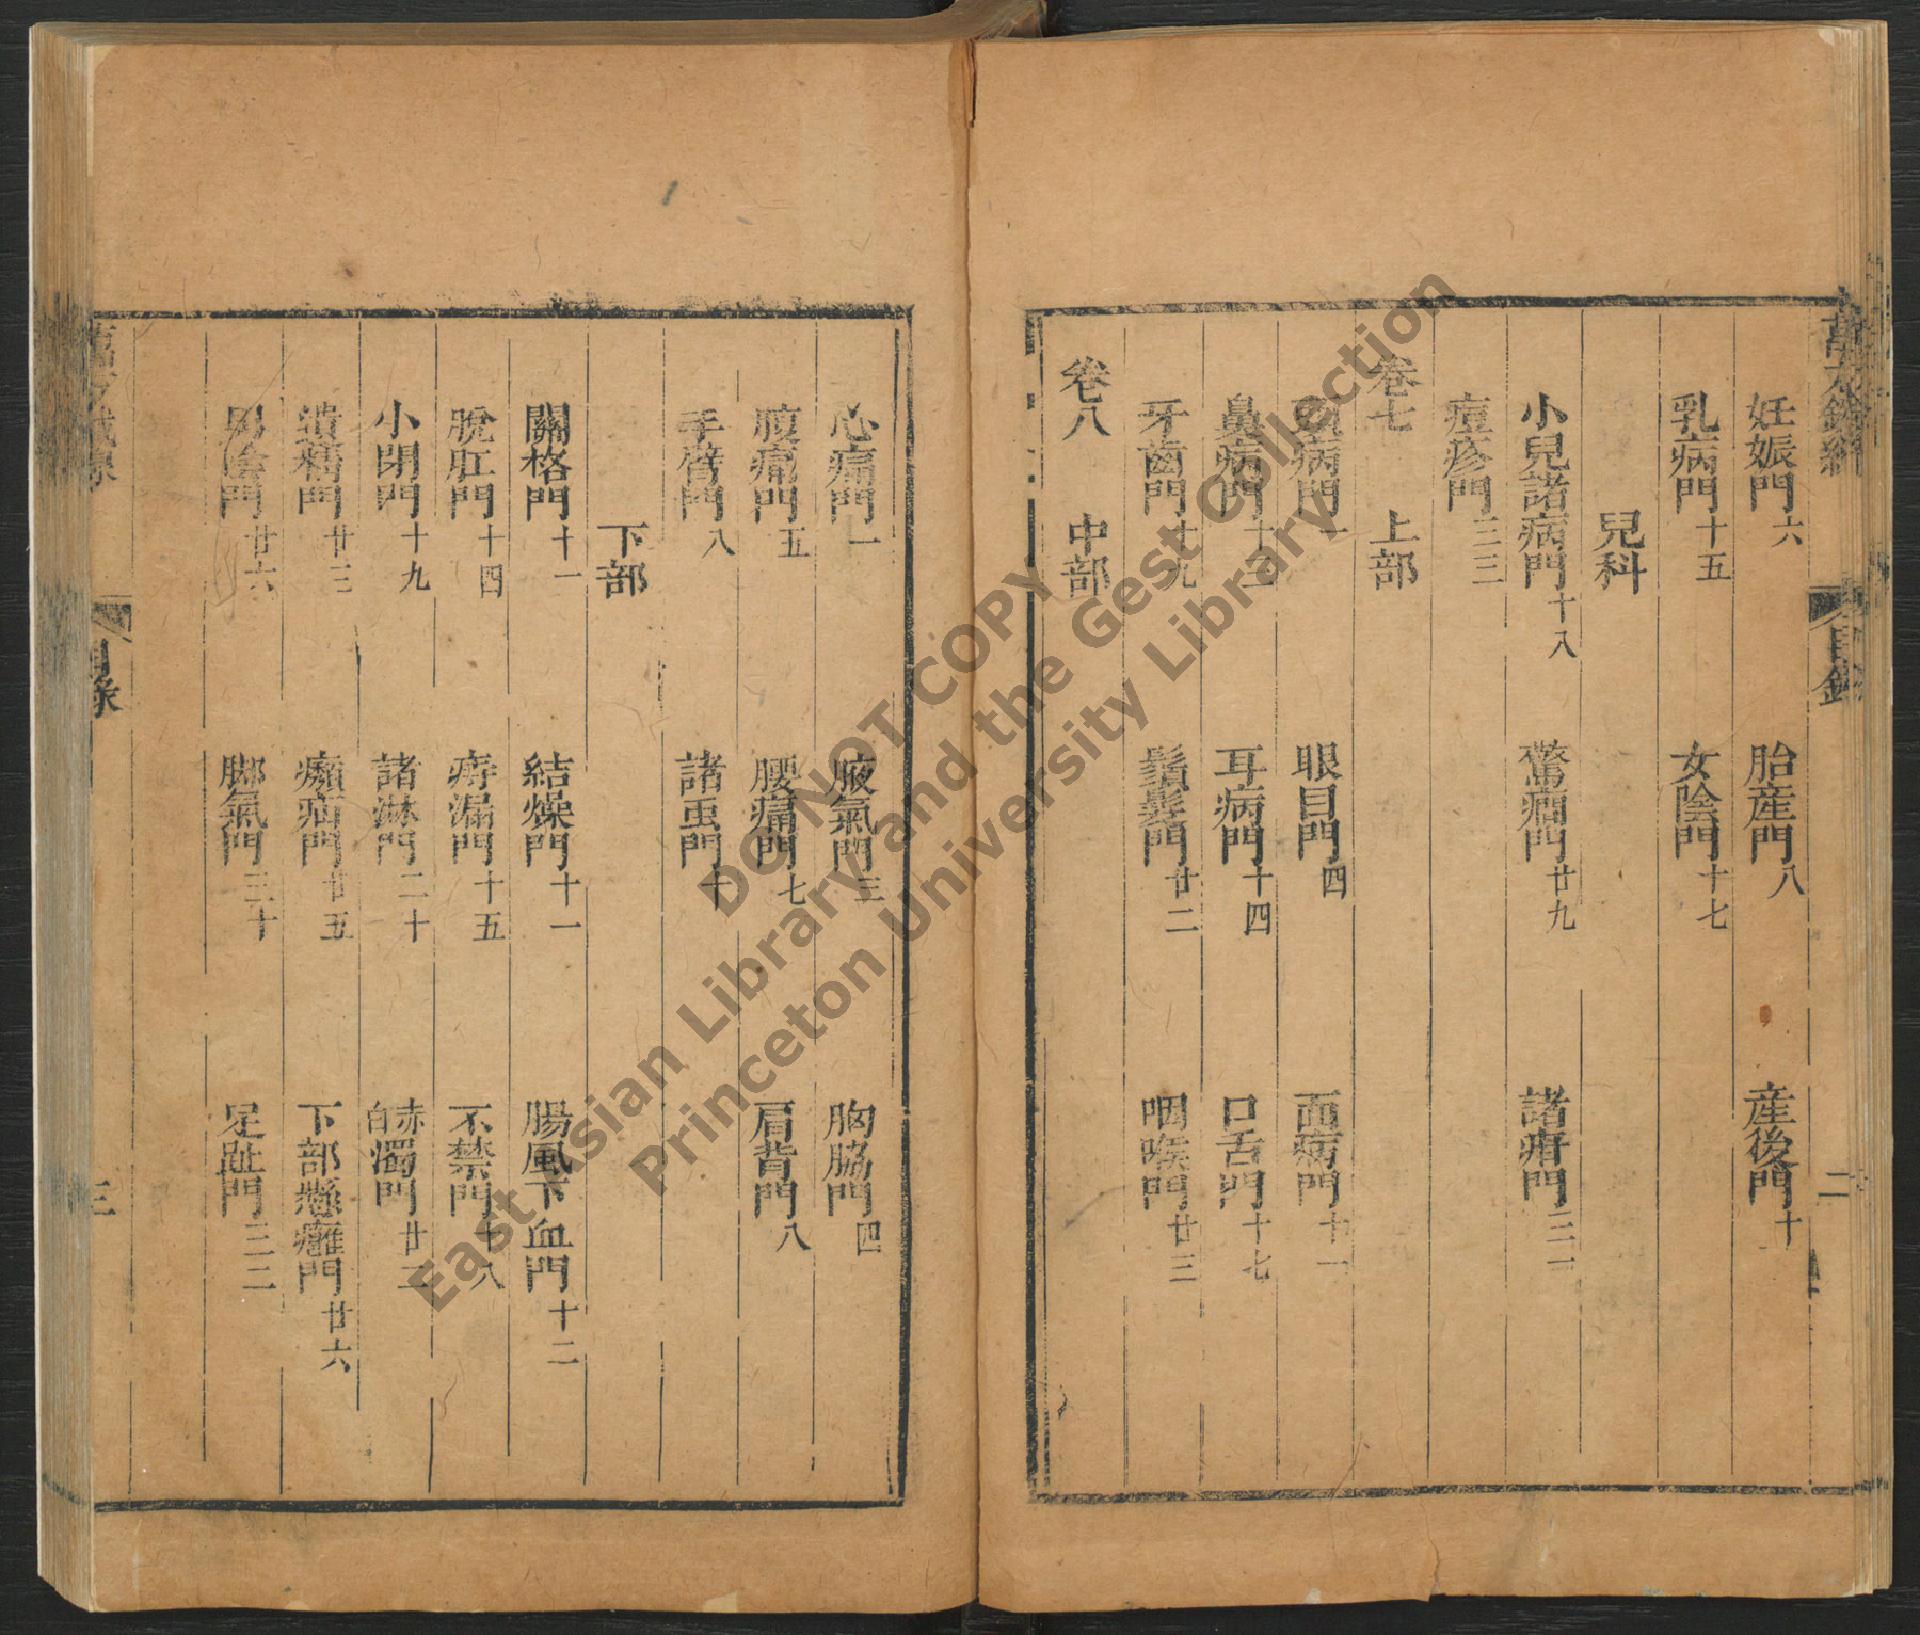 妊娠門六 胎産門八 産後門十
乳病門十五 女陰門十七
兒科
小兒諸病門十八 驚癎門廿九 諸疳門三一
痘疹門三三
卷七 上部
頭病門一 眼目門四 面病門十一
鼻病門十二 耳病門十四 口舌門十七
牙齒門十九 鬚髮門廿二 咽喉門廿三
卷八 中部
目錄
二
心痛門一 腋氣門三 胸脇門四
腹痛門五 腰痛門七 肩背門八
手臂門八 諸蟲門十
下部
關格門十一 結燥門十一 腸風下血門十二
脫肛門十四 痔漏門十五 不禁門十八
小閉門十九 諸淋門二十 赤白濁門廿二
遺精門廿三 㿗疝門廿五 下部懸癰門廿六
男陰門廿六 脚氣門三十 足趾門三二
目錄
三
DO NOT COPY
East Asian Library and the Gest Collection
Princeton University Library